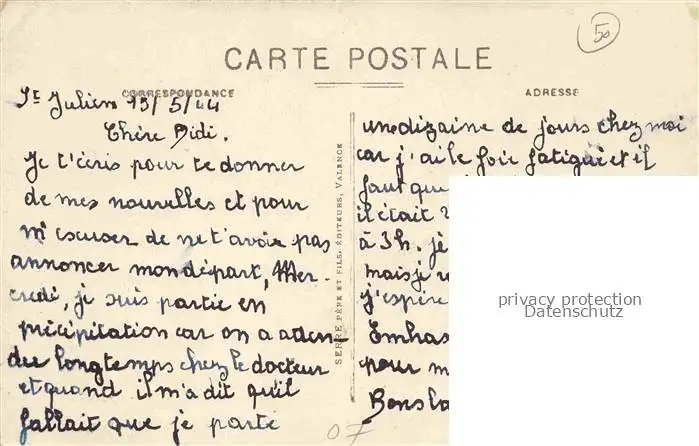 50
CARTE POSTALE
CORRESPONDANCE
ADRESSE
St Julien 13/5/44
Chère Didi.
Je t'écris pour te donner
de mes nouvelles et pour
m'escuser de ne t'avoir pas
annoncer mon départ, Mer-
credi, je suis partie en
précipitation car on a atten-
du longtemps chez le docteur
et quand il m'a dit qu'il
fallait que je parte
SERRE PÈRE ET FILS, ÉDITEURS, VALENCE
une dizaine de jours chez moi
car j'ai le foie fatigué et il
faut que
il était
à 3h. je
mais je
j'espère
Embras
pour m
Bons
07
privacy protection
Datenschutz